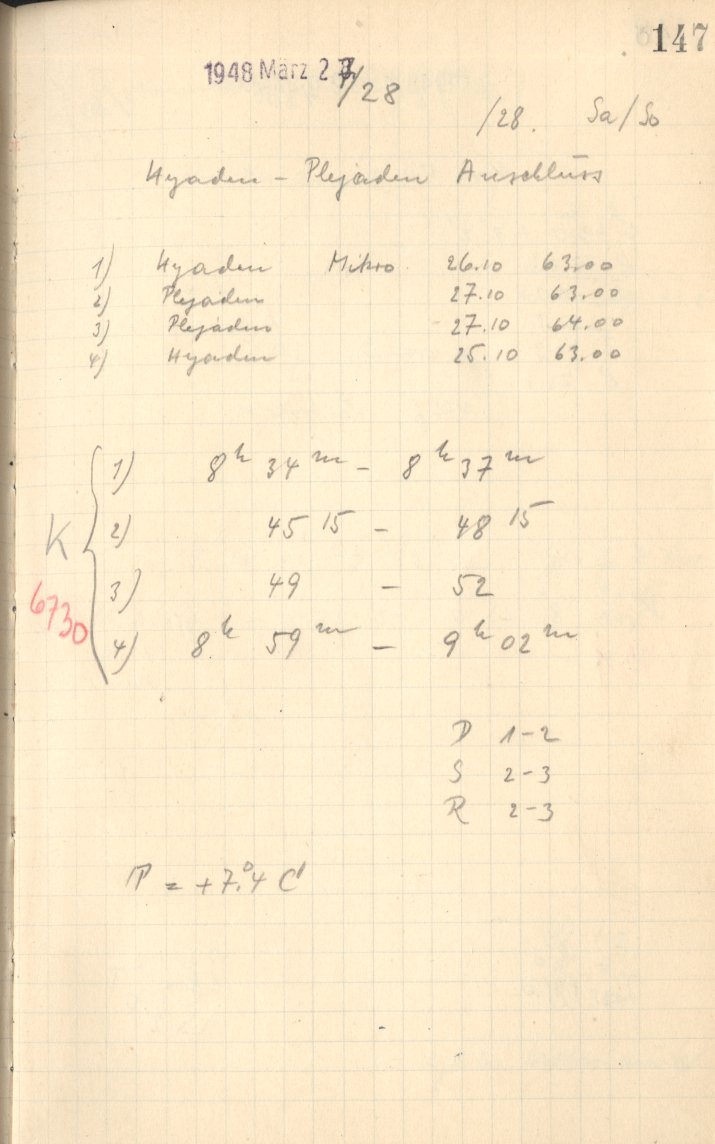 147
1948 März 27/28
/28. Sa/So
Hyaden - Plejaden Anschluss
1) Hyaden Mikro 26.10 63.00
2) Plejaden 27.10 63.00
3) Plejaden 27.10 64.00
4) Hyaden 25.10 63.00
1) 8h 34m - 8h 37m
K 2) 45 15 - 48 15
3) 49 - 52
6730
4) 8h 59m - 9h 02m
D 1-2
S 2-3
R 2-3
T = +7°.4 C